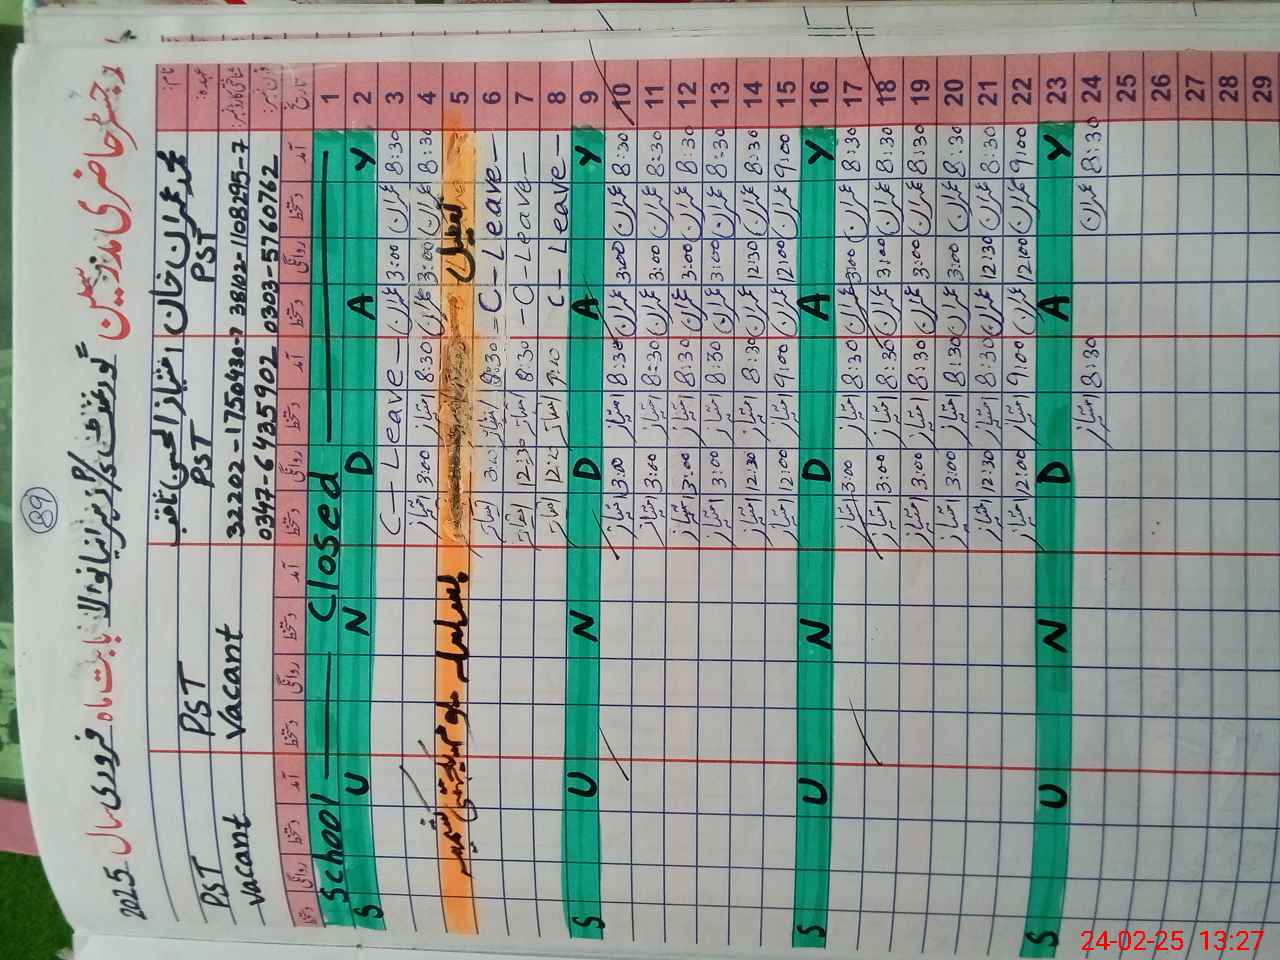 89
رجسٹر حاضری مدرسین گورنمنٹ بابت ماہ فروری سال 2025
نام: محمد عمران خان امتیاز الحسن ثاقب
عہدہ: PST PST PST PST
شناختی کارڈ نمبر: 38102-1108295-7 32202-1750430-7 Vacant Vacant
فون نمبر: 0303-5760762 0347-6435902
تاریخ آمد دستخط روانگی دستخط آمد دستخط روانگی دستخط آمد دستخط روانگی دستخط آمد دستخط روانگی دستخط
1 School Closed
2 S U N D A Y
3 8:30 عمران 3:00 عمران C - Leave -
4 8:30 عمران 3:00 عمران 8:30 امتیاز 3:00 امتیاز
5 تعطیل بسلسلہ یوم یکجہتی کشمیر
6 - C - Leave - 8:30 امتیاز 3:00 امتیاز
7 - C - Leave - 8:30 امتیاز 12:30 امتیاز
8 C - Leave - امتیاز امتیاز
9 S U N D A Y
10 8:30 عمران 3:00 عمران 8:30 امتیاز 3:00 امتیاز
11 8:30 عمران 3:00 عمران 8:30 امتیاز 3:00 امتیاز
12 8:30 عمران 3:00 عمران 8:30 امتیاز 3:00 امتیاز
13 8:30 عمران 3:00 عمران 8:30 امتیاز 3:00 امتیاز
14 8:30 عمران 12:30 عمران 8:30 امتیاز 12:30 امتیاز
15 9:00 عمران 12:00 عمران 9:00 امتیاز 12:00 امتیاز
16 S U N D A Y
17 8:30 عمران 3:00 عمران 8:30 امتیاز 3:00 امتیاز
18 8:30 عمران 3:00 عمران 8:30 امتیاز 3:00 امتیاز
19 8:30 عمران 3:00 عمران 8:30 امتیاز 3:00 امتیاز
20 8:30 عمران 3:00 عمران 8:30 امتیاز 3:00 امتیاز
21 8:30 عمران 12:30 عمران 8:30 امتیاز 12:30 امتیاز
22 9:00 عمران 12:00 عمران 9:00 امتیاز 12:00 امتیاز
23 S U N D A Y
24 8:30 عمران 8:30 امتیاز
25
26
27
28
29
24-02-25 13:27